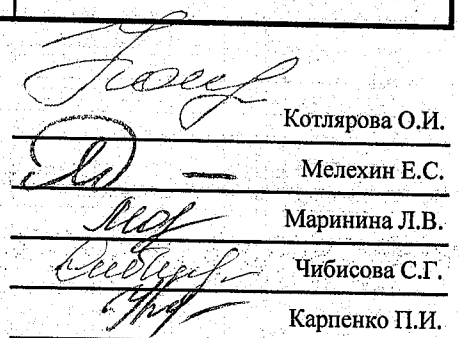 Котлярова О.И.
Мелехин Е.С.
Маринина Л.В.
Чибисова С.Г.
Карпенко П.И.